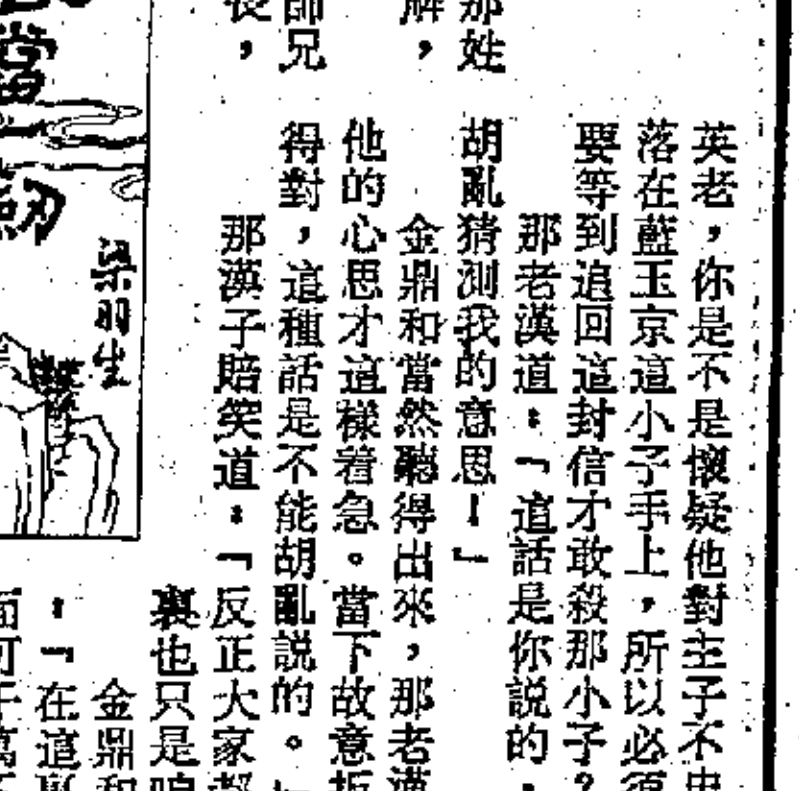 英老，你是不是懷疑他對主子不忠
落在藍玉京這小子手上，所以必須
要等到追回這封信才敢殺那小子？
那老漢道：「這話是你說的，
那姓
胡亂猜測我的意思！」
解，
金鼎和當然聽得出來，那老漢
他的心思才這樣着急。當下故意扳
師兄
得對，這種話是不能胡亂説的。」
長，
那漢子賠笑道：「反正大家都
裏也只是咱
金鼎和
：「在這裏
當
劍
梁羽生